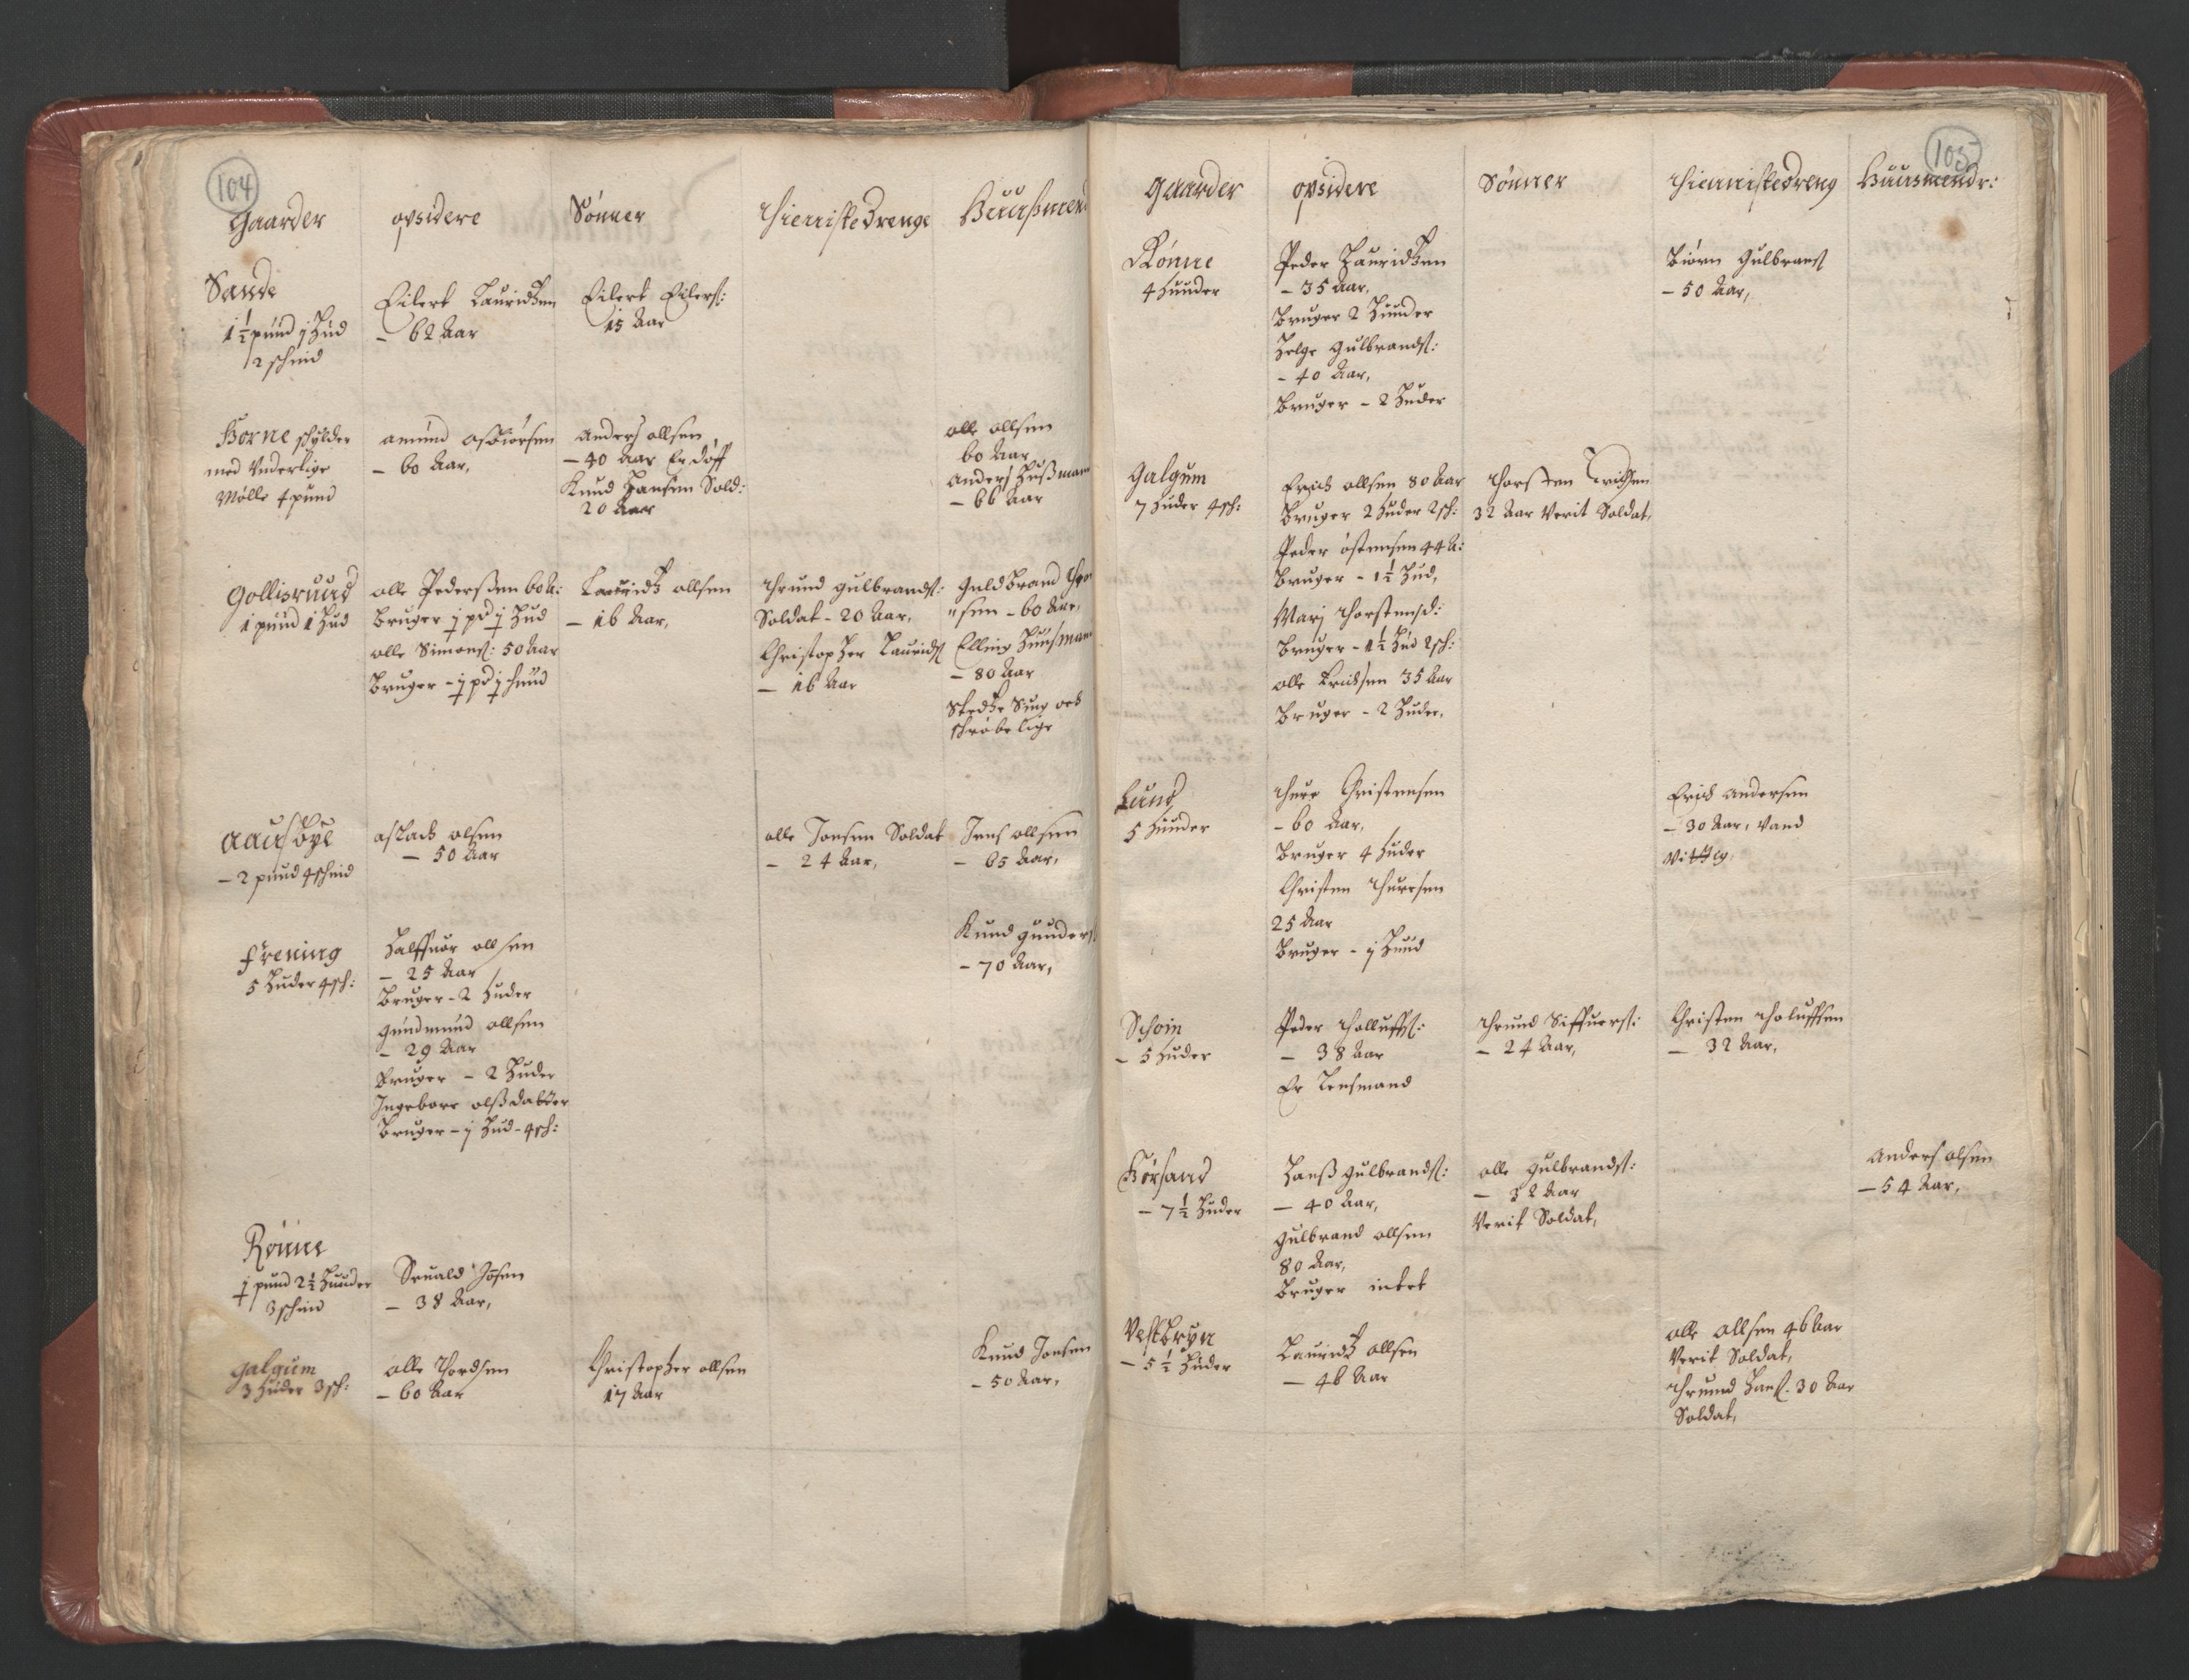 104
Gaarder opsidere Sönner thienniste Drenge Huußmend
Sande
1½ pund j Hud
2 schind
Eilert Lauridtzen
– 62 Aar
Eilert Eilers:
15 Aar
Horne schylder
med Underlige
Mølle 4 pund
Amund Asbiörsen
– 60 Aar,
Anders ollsen
– 40 Aar Er döff
Knud Hansen Sold:
20 Aar
olle ollsen
60 Aar
Anders Hußmann
– 66 Aar
Gollisruud
1 pund 1 Hud
olle Pederßen 60 A:
Bruger j pd j Hud
olle Simons: 50 Aar
Bruger – j pd j huud
Lauridtz ollsen
– 16 Aar,
thrund gulbrands:
Soldat – 20 Aar,
Christopher Laurids
– 16 Aar
Guldbrand
– 60 Aar,
Elling Huusmann
– 80 Aar
Stedtze Siug och
schröbelige
Aausbye
– 2 pund 4 schind
Aslach olsen
– 50 Aar
olle Jonsen Soldat
– 24 Aar,
Jens ollsen
– 65 Aar,
frening
5 Huder 4 sch:
Halffuor ollsen
– 25 Aar
Bruger – 2 Huder
Gundmund ollsen
– 29 Aar
Bruger – 2 Huder
Ingebore olßdatter
Bruger – j Hud – 4 sch:
Knud gunders
– 70 Aar,
Rönne
j pund 2½ Huuder
3 schind
Siuald Josen
– 38 Aar,
galgum
3 Huder 3 sch:
olle Thordsen
– 60 Aar
Christopher ollsen
17 Aar
Knud Jonsen
– 50 Aar,
105
Gaarder opsidere Sönner thienniste Dreng Huusmendr:
Rönne
4 Huuder
Peder Lauridtzen
– 35 Aar,
Bruger 2 Huuder
Helge Gulbrands:
– 40 Aar,
Bruger – 2 Huder
Biörn Gulbrans
– 50 Aar,
Galgum
7 Huder 4 sch:
Erich ollsen 80 Aar
Bruger 2 Huder 2 sch:
Peder östensen 44 A:
Bruger – 1½ Hud,
Marj thorstensd:
Bruger – 1½ Hud 2 sch:
olle Erichsen 35 Aar
Bruger – 2 Huder,
thorsten Erichsen
32 Aar Verit Soldat,
Lund
5 Huuder
thurr Christensen
– 60 Aar,
Bruger 4 Huder
Christen thuresen
25 Aar
Bruger – j Huud
Erich Andersen
– 30 Aar, Vand
Vittig,
Schoin
– 5 Huder
Peder tholluffs:
– 38 Aar
Er Lensmand
thrund Siffuers:
– 24 Aar,
Christen tholuffsen
– 32 Aar,
Hörsand
– 7½ Huder
Hanß gulbrands:
– 40 Aar,
Gulbrand ollsen
80 Aar,
Bruger intet
olle gulbrands:
– 32 Aar
Verit Soldat,
Anders olsen
– 54 Aar,
Vestbryn
– 5½ Huder
Lauridtz ollsen
– 46 Aar
olle ollsen 46 Aar
Verit Soldat,
thrund Hans. 30 Aar
Soldat,